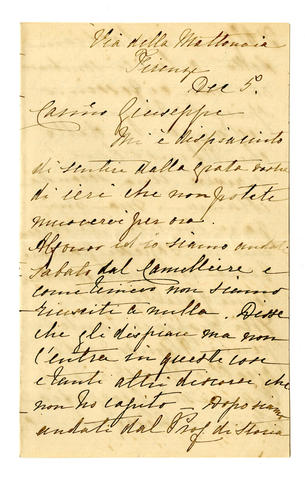 Via della Mattonaia
Firenze
Dec 5.
Carino Giuseppe
Mi è dispiaciuto
di sentire dalla grata vostra
di ieri che non potete
muovervi per ora.
Alfonso ed io siamo andati
sabato dal Camelliere e
come temevo non siamo
riusciti a nulla. Disse
che gli dispiace ma non
c'entra in queste cose
e tanti altri discorsi che
non ho capito. Dopo siamo
andati dal Prof di Storia